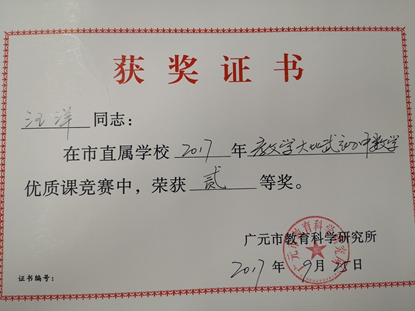 获奖证书
汪洋 同志：
在市直属学校 2017 年 教学大比武初中数学
优质课竞赛中，荣获 贰 等奖。
广元市教育科学研究所
2017 年 9 月 25 日
证书编号：